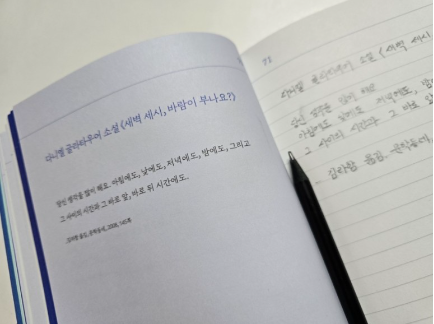 다니엘 글라타우어 소설 《새벽 세시, 바람이 부나요?》
당신 생각을 많이 해요. 아침에도, 낮에도, 저녁에도, 밤에도, 그리고
그 사이의 시간과 그 바로 앞, 바로 뒤 시간에도.
김라합 옮김, 문학동네, 2008,
71
다니엘 글라타우어 소설 《새벽 세시,
당신 생각을 많이 해요
아침에도 낮에도, 저녁에도, 밤
그 사이의 시간과 그 바로 앞
- 김라합 옮김, 문학동네,